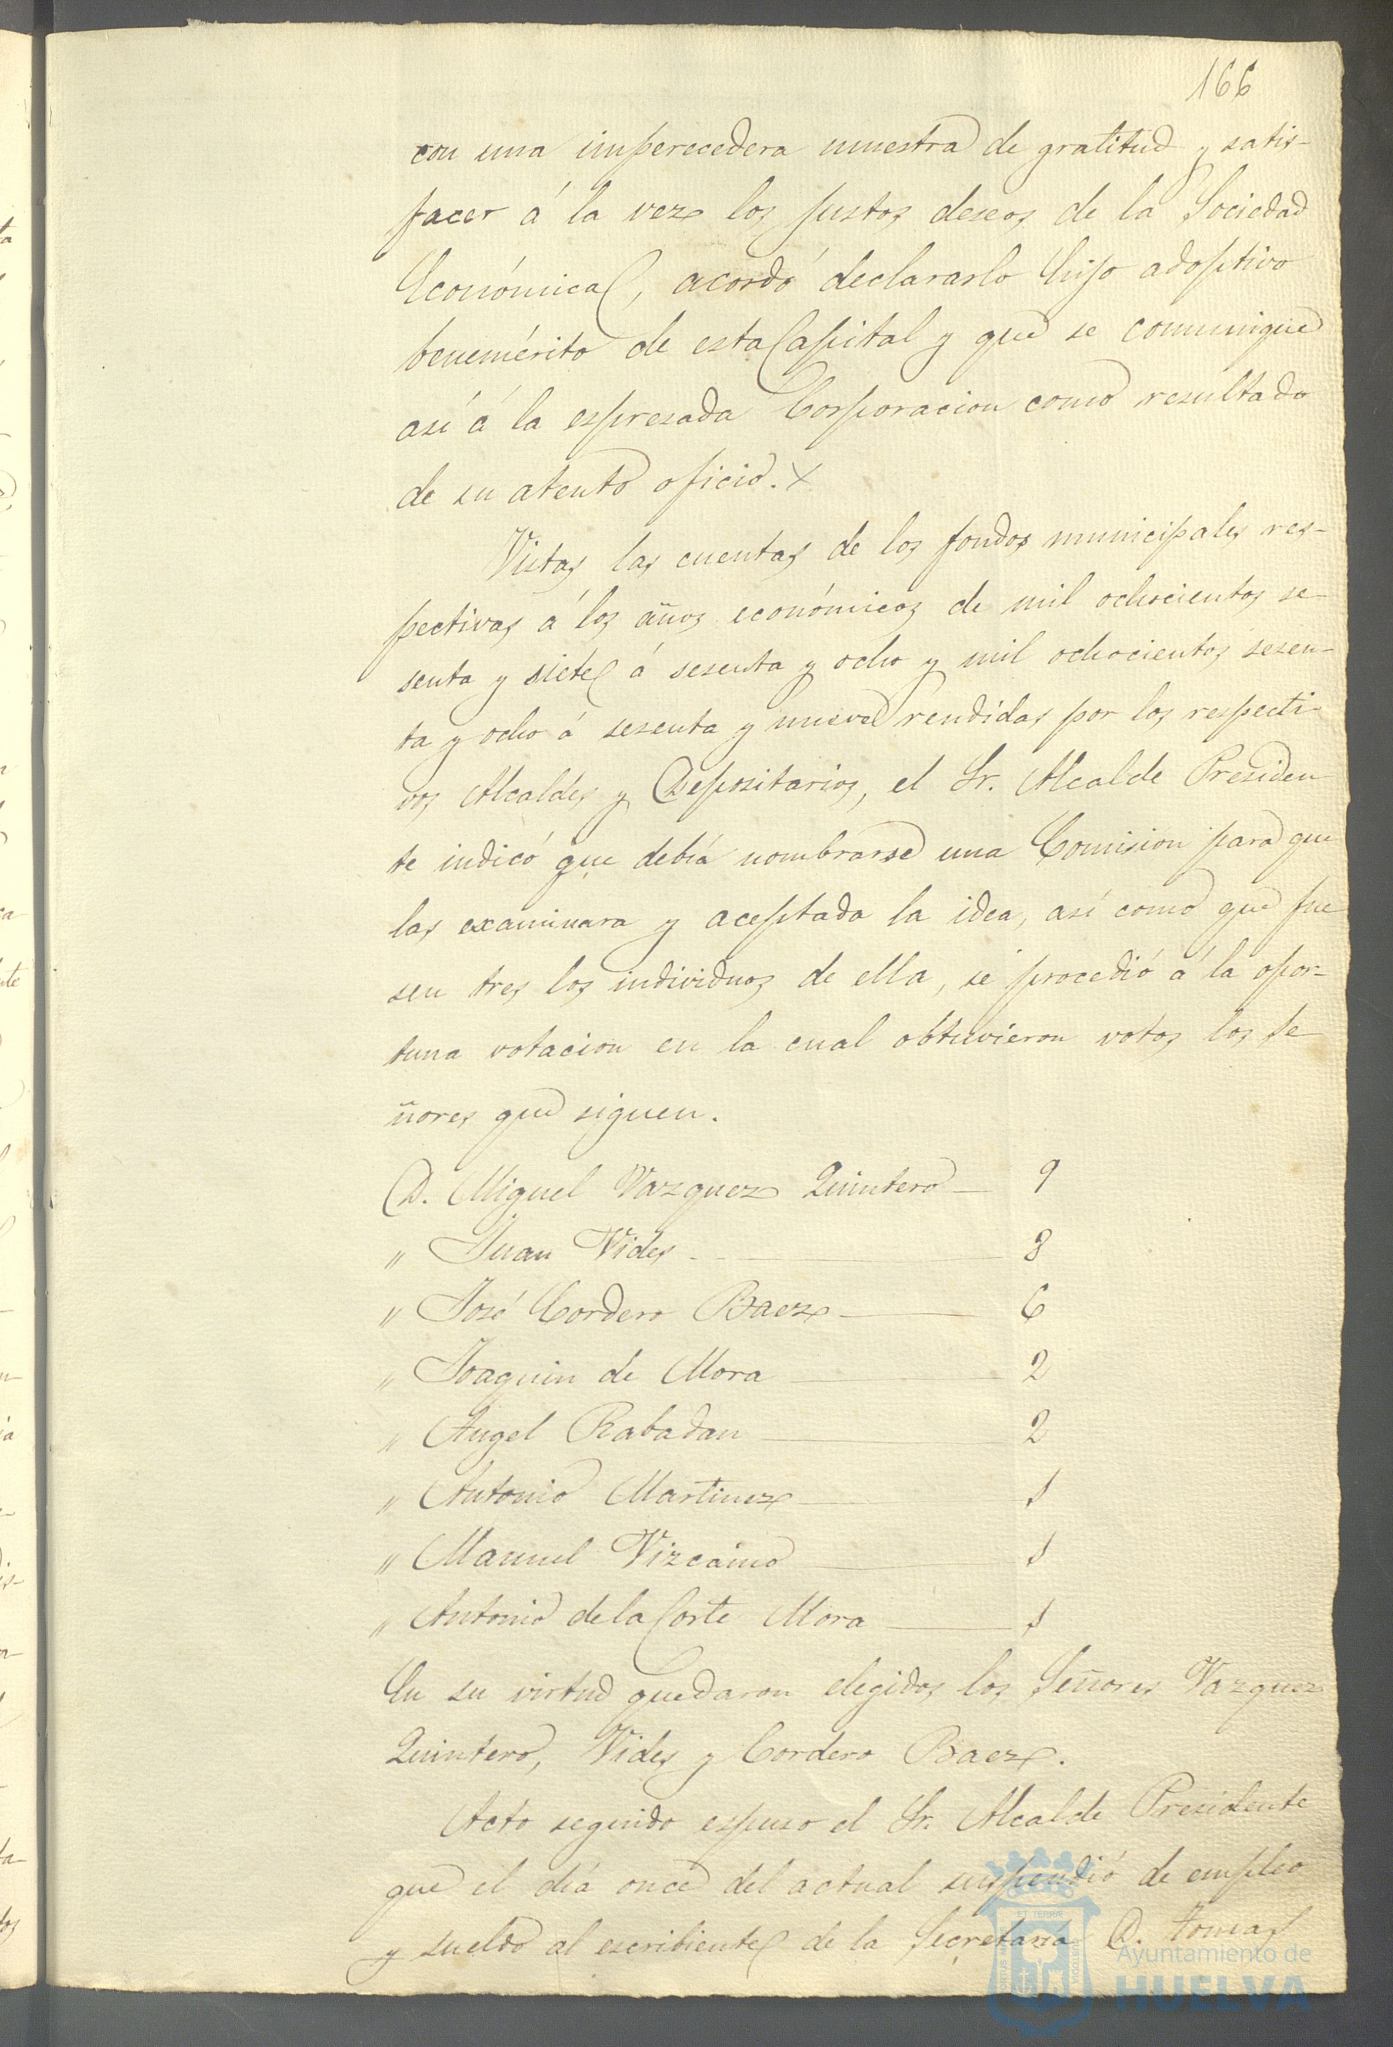 166
con una imperecedera muestra de gratitud y satis-
facer á la vez los justos deseos de la Sociedad
Económica, acordó declararlo hijo adoptivo
benemérito de esta Capital y que se comunique
así á la espresada Corporacion como resultado
de su atento oficio. X
Vistas las cuentas de los fondos municipales res-
pectivas á los años económicos de mil ochocientos se-
senta y siete á sesenta y ocho y mil ochocientos sesen-
ta y ocho á sesenta y nueve rendidas por los respecti-
vos Alcaldes y Depositarios, el Sr. Alcalde Presiden
te indicó que debía nombrarse una Comision para que
las examinara y aceptada la idea, así como que fue
sen tres los individuos de ella, se procedió á la opor-
tuna votacion en la cual obtuvieron votos los Se
ñores que siguen.
D. Miguel Vazquez Quintero — 9
„ Juan Vides — 8
„ José Cordero Baez — 6
„ Joaquin de Mora — 2
„ Angel Rabadan — 2
„ Antonio Martinez — 1
„ Manuel Vizcaino — 1
„ Antonio de la Corte Mora — 1
En su virtud quedaron elegidos los Señores Vazquez
Quintero, Vides y Cordero Baez.
Acto seguido espuso el Sr. Alcalde Presidente
que el día once del actual suspendió de empleo
y sueldo al escribiente de la Secretaria D. Tomas
Ayuntamiento de
HUELVA